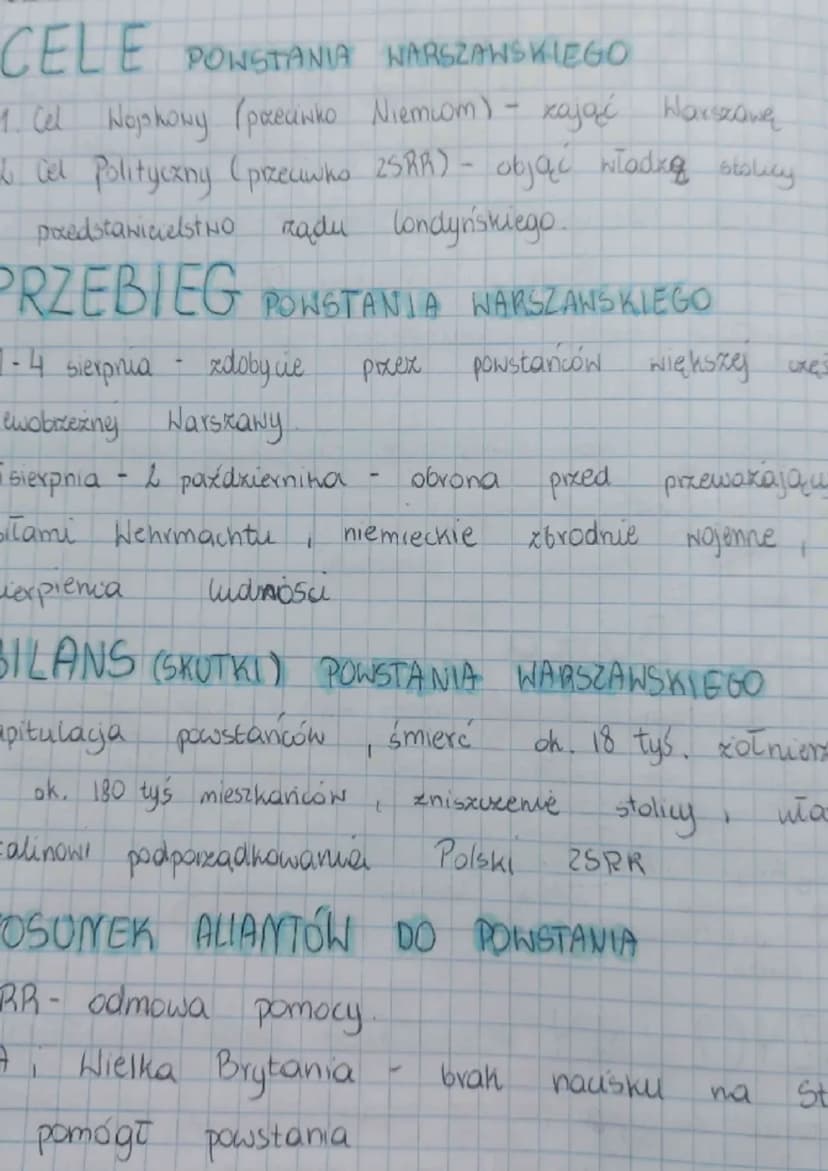 CELE POWSTANIA WARSZAWSKIEGO
1. Cel Wojskowy (przeciwko Niemcom) - zająć Warszawę
2. Cel Polityczny (przeciwko ZSRR) - objąć władzę stolicy
przedstawicielstwo rządu londyńskiego.
PRZEBIEG POWSTANIA WARSZAWSKIEGO
1-4 sierpnia - zdobycie przez powstańców większej częś
ewobrzeżnej Warszawy
sierpnia - 2 października - obrona przed przeważający
siłami Wehrmachtu, niemieckie zbrodnie wojenne,
ierpienia ludności
BILANS (SKUTKI) POWSTANIA WARSZAWSKIEGO
apitulacja powstańców, śmierć ok. 18 tyś. żołnierz
ok. 180 tyś mieszkańców, zniszczenie stolicy, uła
alinowi podporządkowania Polski ZSRR
OSUNEK ALIANTÓW DO POWSTANIA
RR - odmowa pomocy.
A i Wielka Brytania - brak nacisku na St
pomógł powstania